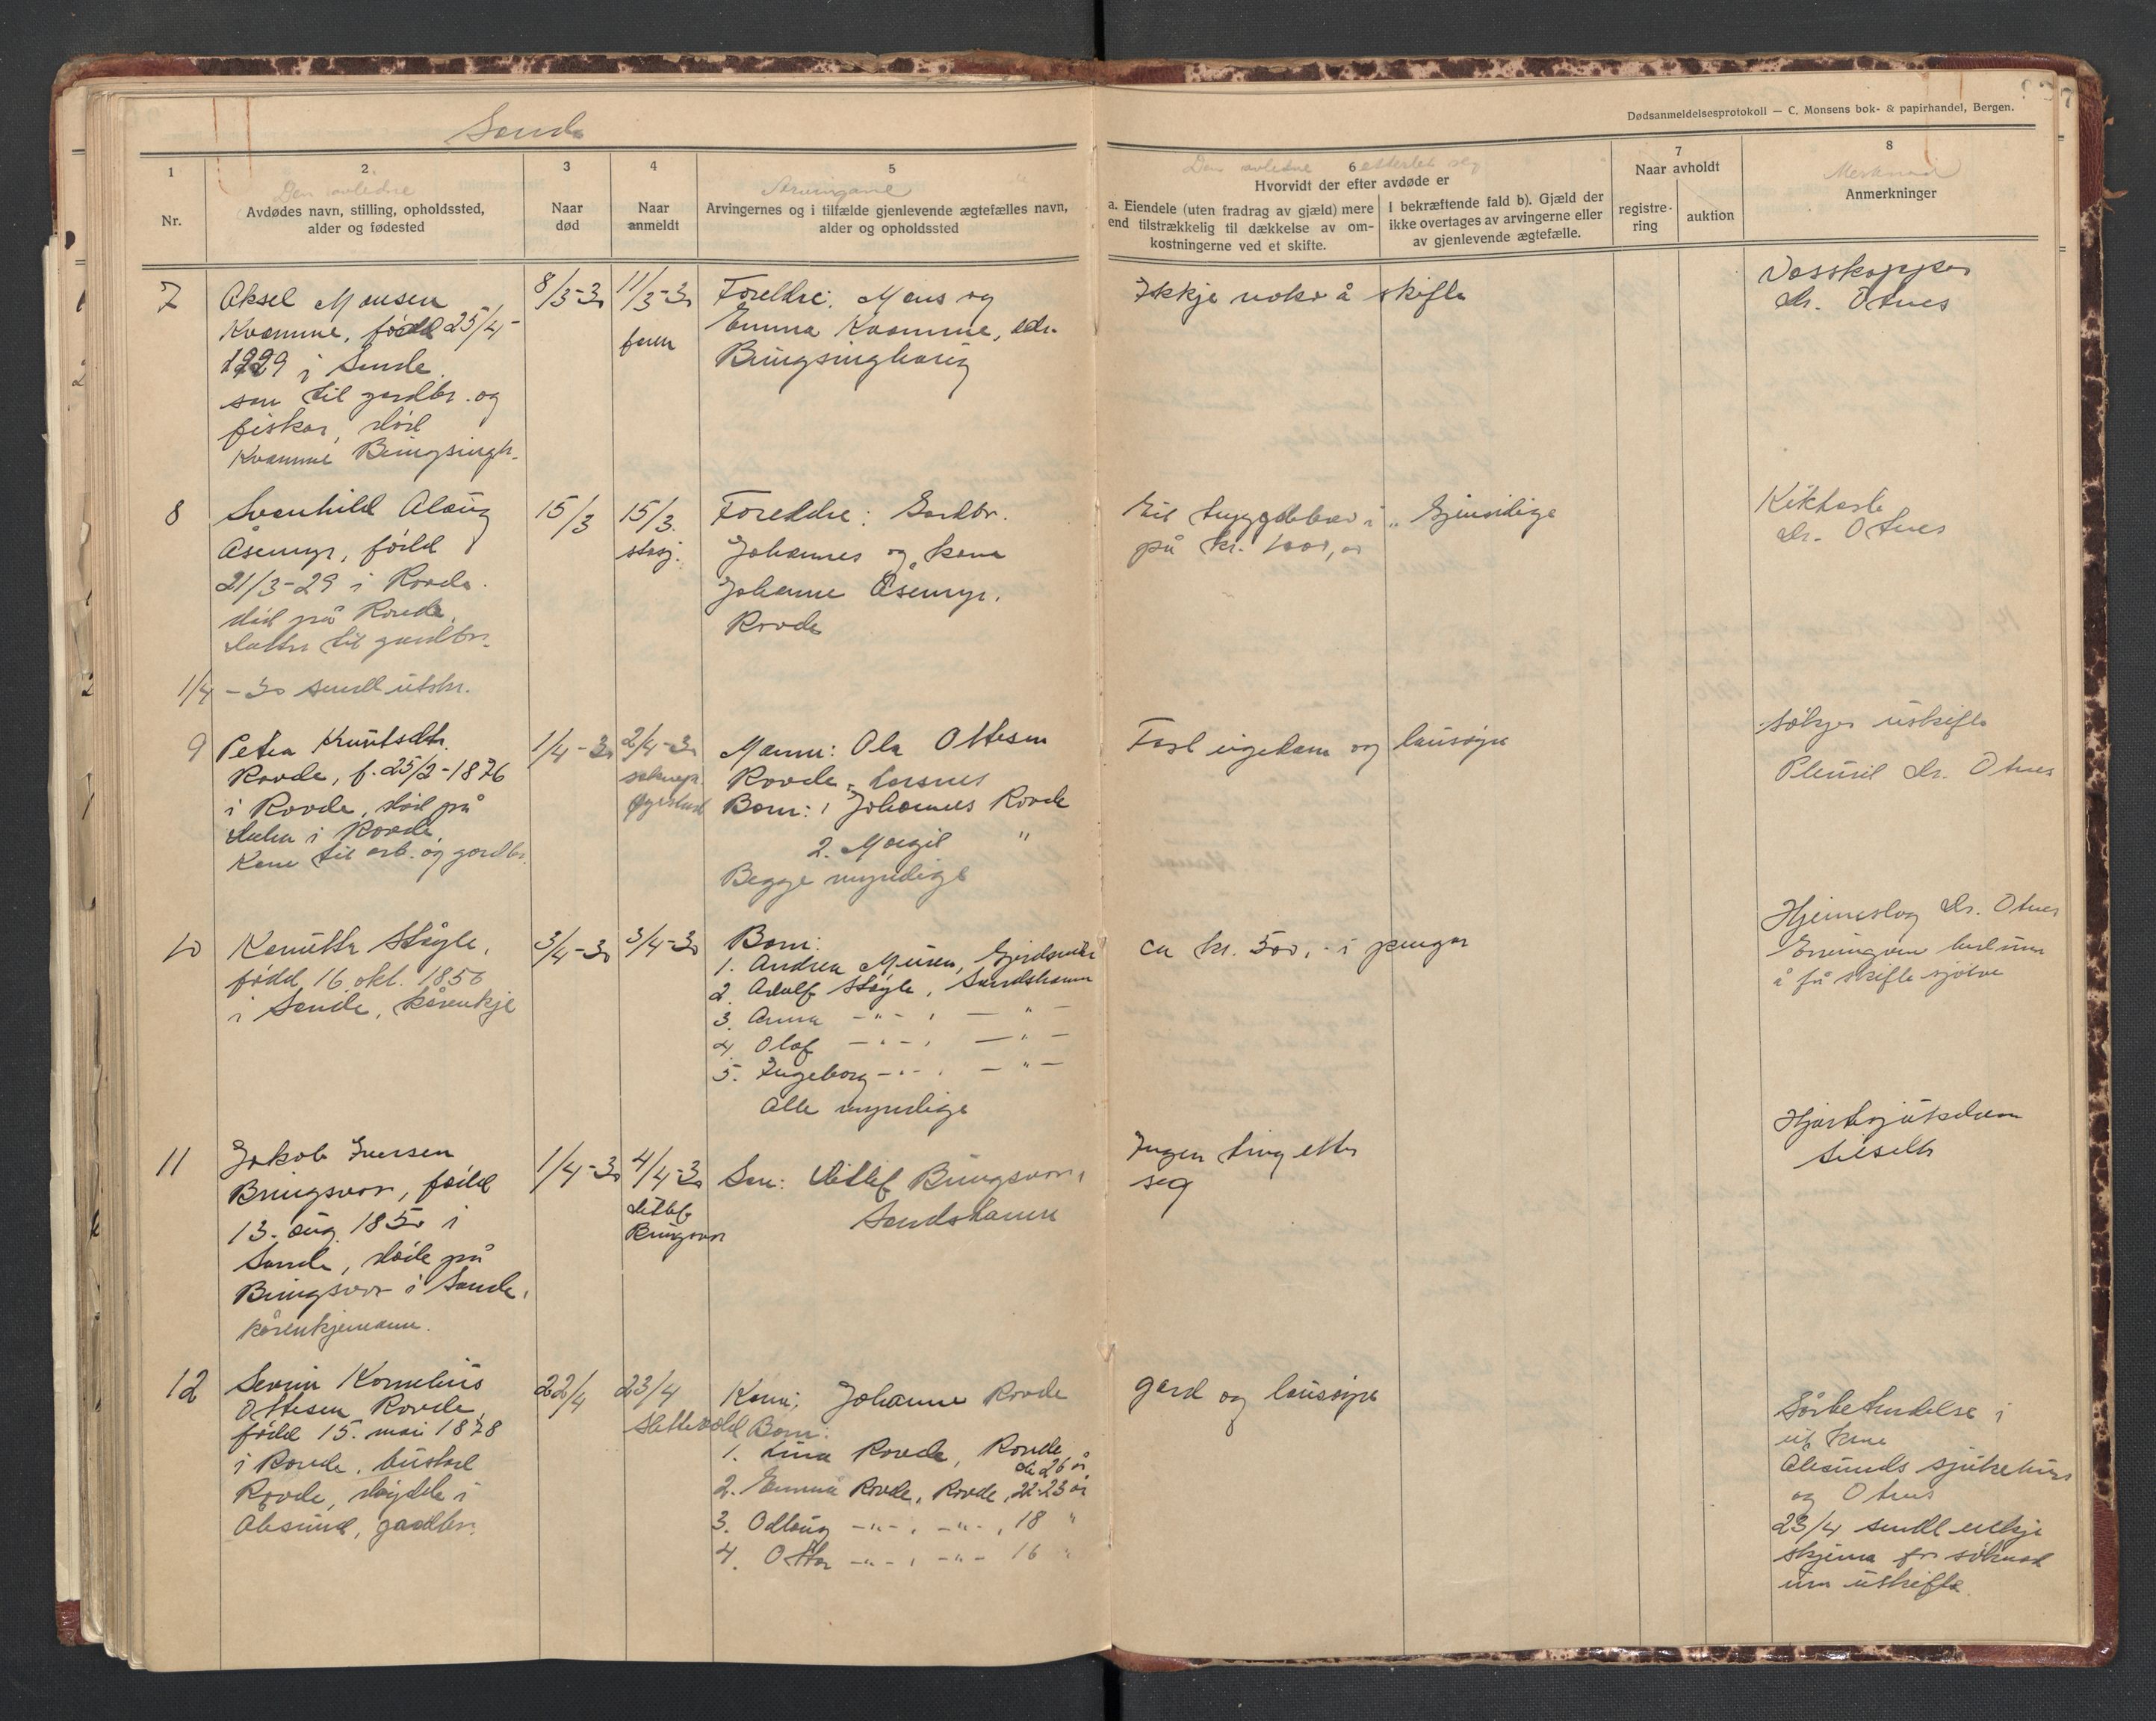 Sande
Dødsanmeldelsesprotokoll — C. Monsens bok- & papirhandel, Bergen.
1
Nr.
2
Den avledne
Avdødes navn, stilling, opholdssted,
alder og fødested
3
Naar
død
4
Naar
anmeldt
5
Arvingane
Arvingernes og i tilfælde gjenlevende ægtefælles navn,
alder og opholdssted
Den avledne etterlet seg
6
Hvorvidt der efter avdøde er
a. Eiendele (uten fradrag av gjæld) mere
end tilstrækkelig til dækkelse av om-
kostningerne ved et skifte.
I bekræftende fald b). Gjæld der
ikke overtages av arvingerne eller
av gjenlevende ægtefælle.
7
Naar avholdt
registre-
ring
auktion
8
Merknad
Anmerkninger
7
Aksel Monsen
Kvamme, fødd 25/4-
1929 i Sande
son til gardbr. og
fiskar, død
Kvamme Bringsingh.
8/3-30
11/3-30
faren
Foreldre: Mons og
Emma Kvamme, 
Bringsinghaug
Ikkje noko å skifte
Vasskoppar
dr. Otnes
8
Svanhild Alaug
Åsemyr, fødd
21/3-29 i Rovde.
død på Rovde,
dotter til gardbr.
15/3
15/3.
Foreldre: Gardbr.
Johannes og kona
Johanne Åsemyr.
Rovde
Eit trygdebrev i „Gjensidige
på kr. 1000,00
Kikhoste
dr. Otnes
1/4-30 sendt utskr.
9
Petra Knutsdtr.
Rovde, f. 25/2-1876
i Rovde, død på
i Rovde,
Kone til arb. og gardbr.
1/4-30
2/4-30
Mann: Ola Ottesen
Rovde, Larsnes
Born: 1 Johannes Rovde
2. Margit "
Begge myndige
Fast eigedom og lausøyre
søkjer uskifte
Plevrit dr. Otnes
10
Støyle,
fødd 16. okt. 1856
i Sande, kårenkje
3/4-30
3/4-30
Born:
1. Andrea Muren, Gjerdsvika
2. Adolf Støyle, Sandshamn
3. Anna -"-, -"-
4. Olaf -"-, -"-
5. Ingeborg -"-, -"-
Alle myndige
ca kr. 500,- i pengar
Hjerneslag dr. Otnes
Ervingane 
å få skifte sjølve
11
Jakob Iversen
Bringsvor, fødd
13. aug. 1850 i
Sande, døde på
Bringsvor i Sande,
kårenkjemann.
1/4-30
4/4-30
Ditlef
Bringsvor
Son: Ditlef Bringsvor,
Sandshamn
Ingen ting etter
seg
Hjartesjukdom
12
Severin Kornelius
Ottesen Rovde,
fødd 15. mai 1878
i Rovde, bustad
Rovde, døydde i
Ålesund, gardbr.
22/4
23/4
Slettevold
Kona: Johanne Rovde
Born:
1. Lina Rovde, Rovde,
26 år
2. Emma Rovde, Rovde, 22-23 år
3. Odlaug -"-, -"-, 18 "
4. Ottar -"-, -"- 16 "
gard og lausøyre
i
Ålesunds sjukehus
og Otnes
23/4 sendt enkje
skjema for søknad
um uskifte.